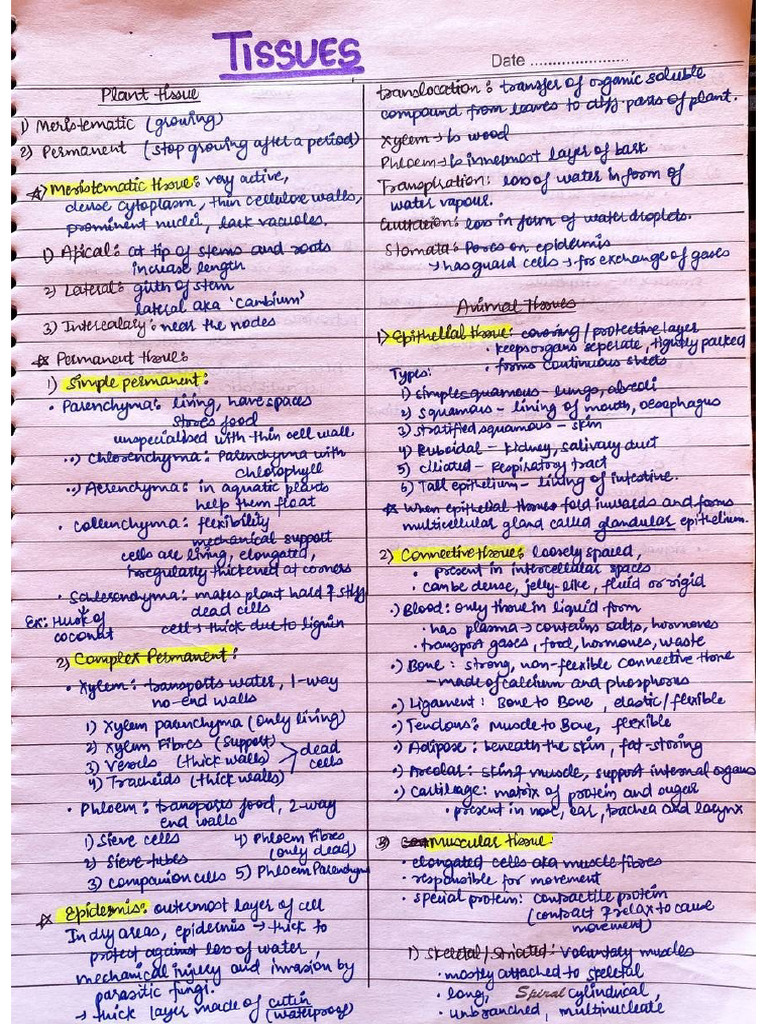 TISSUES
Date ........................
Plant tissue
1) Meristematic (growing)
2) Permanent (stop growing after a period)
☆) Meristematic tissue: very active,
dense cytoplasm, thin cellulose walls,
prominent nuclei, lack vacuoles.
1) Apical: at tip of stems and roots
increase length
2) Lateral: girth of stem
lateral aka 'Cambium'
3) Intercalary: near the nodes
☆ Permanent tissue:
1) Simple permanent:
• Parenchyma: living, have spaces
stores food
unspecialised with thin cell wall
••) Chlorenchyma: Parenchyma with
chlorophyll
••) Aerenchyma: in aquatic plants
help them float
• Collenchyma: flexibility
mechanical support
cells are living, elongated,
irregularly thickened at corners
• Sclerenchyma: makes plant hard & stiff
dead cells
Ex: Husk of
coconut
cell → thick due to lignin
2) Complex Permanent:
• Xylem: transports water, 1-way
no-end walls
1) Xylem parenchyma (only living)
2) Xylem Fibres (support)
3) Vessels (thick walls)
4) Tracheids (thick walls)
dead
cells
• Phloem: transports food, 2-way
end walls
1) Sieve cells
2) Sieve tubes
3) companion cells
4) Phloem Fibres
(only dead)
5) Phloem Parenchyma
☆ Epidermis: outermost layer of cell
In dry areas, epidermis → thick to
protect against loss of water,
mechanical injury and invasion by
parasitic fungi.
→ thick layer made of cutin
(waterproof)
translocation: transfer of organic soluble
compound from leaves to diff. parts of plant.
Xylem → is wood
Phloem → is innermost layer of bark
Transpiration: loss of water in form of
water vapour.
Guttation: loss in form of water droplets.
Stomata: Pores on epidermis
→ has guard cells → for exchange of gases
Animal tissues
1) Epithelial tissue: covering / protective layer
• keeps organs seperate, tightly packed
• forms continuous sheets
Types:
1) simple squamous - lungs, alveoli
2) Squamous - lining of mouth, oesophagus
3) stratified squamous - skin
4) Cuboidal - kidney, salivary duct
5) ciliated - Respiratory tract
6) Tall epithelium - lining of intestine.
☆ When epithelial tissues fold inwards and forms
multicellular gland called glandular epithelium.
2) Connective tissue: loosely spaced,
• present in intercellular spaces
• can be dense, jelly-like, fluid or rigid
•) Blood: only tissue in liquid form
• has plasma → contains salts, hormones
• transport gases, food, hormones, waste
•) Bone: strong, non-flexible connective tissue
- made of calcium and phosphorus
•) Ligament: Bone to Bone, elastic / flexible
•) Tendons: muscle to Bone, flexible
•) Adipose: beneath the skin, fat-storing
•) Areolar: skin & muscle, support internal organs
•) Cartilage: matrix of protein and sugar
• present in nose, ear, trachea and larynx
3) Muscular tissue:
• elongated cells aka muscle fibres
• responsible for movement
• special protein: contractile protein
(contract & relax to cause
movement)
1) Skeletal / striated: voluntary muscles
• mostly attached to skeletal
• long, cylindrical,
Spiral
• unbranched, multinucleate